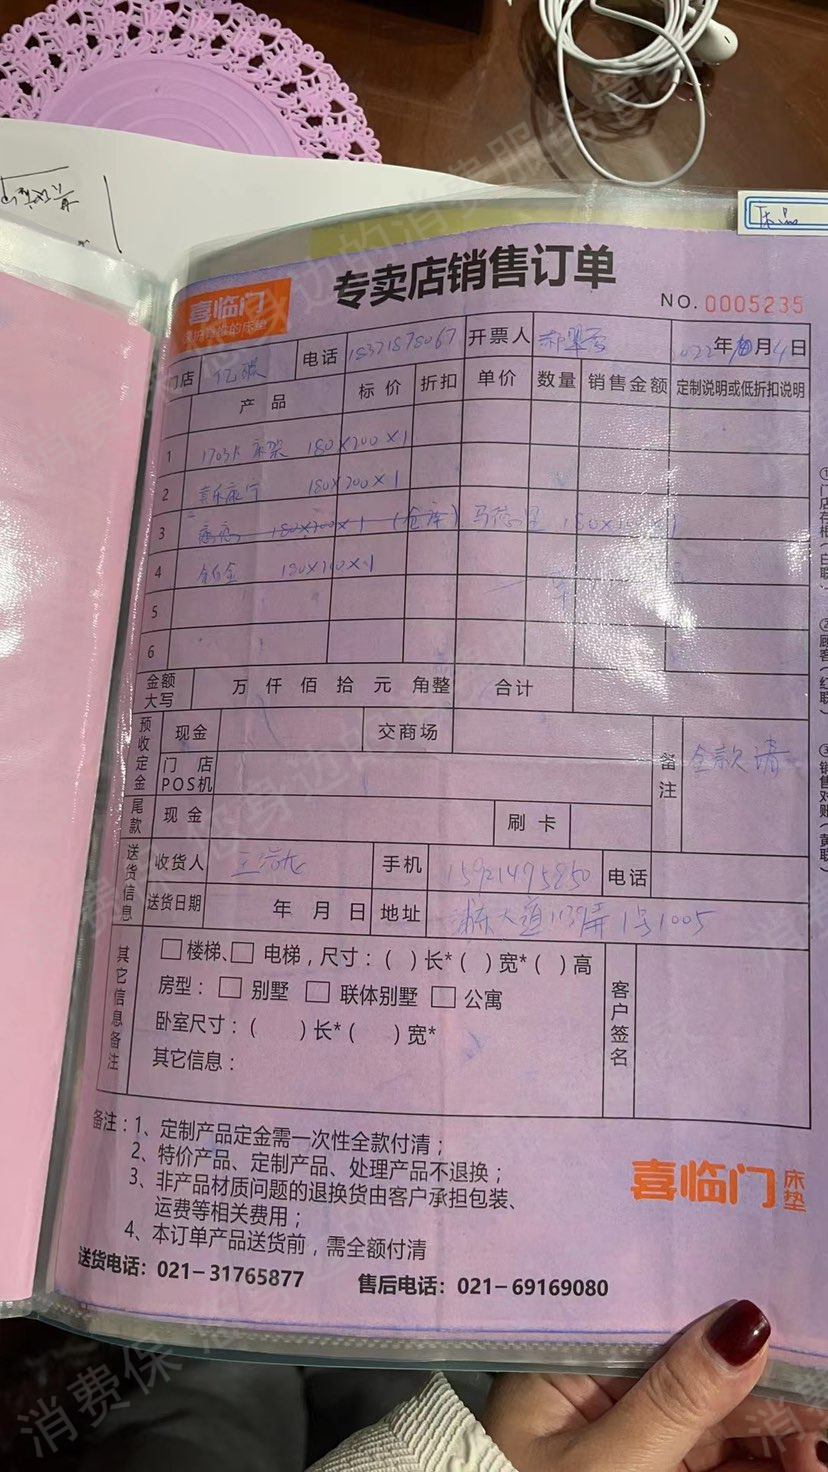 喜临门
专卖店销售订单
NO. 0005235
门店 亿琪 电话 18321878067 开票人 2022年 月4日
产品 标价 折扣 单价 数量 销售金额 定制说明或低折扣说明
1 1703# 床架 180×200×1
2 喜乐康宁 180×200×1
3 180×200×1 (仓库) 马德里
4 铂金 180×200×1
5
6
金额大写 万 仟 佰 拾 元 角整 合计
预收定金 现金 交商场 备注 全款清
门店POS机
尾款 现金 刷卡
送货信息 收货人 手机 15921495850 电话
送货日期 年 月 日 地址 浦东大道1139弄1号1005
其它信息备注 楼梯、 电梯，尺寸：( )长*( )宽*( )高 客户签名
房型： 别墅 联体别墅 公寓
卧室尺寸：( )长*( )宽*
其它信息：
备注：1、定制产品定金需一次性全款付清；
2、特价产品、定制产品、处理产品不退换；
3、非产品材质问题的退换货由客户承担包装、
运费等相关费用；
4、本订单产品送货前，需全额付清
喜临门 床垫
送货电话：021-31765877 售后电话：021-69169080
消费保